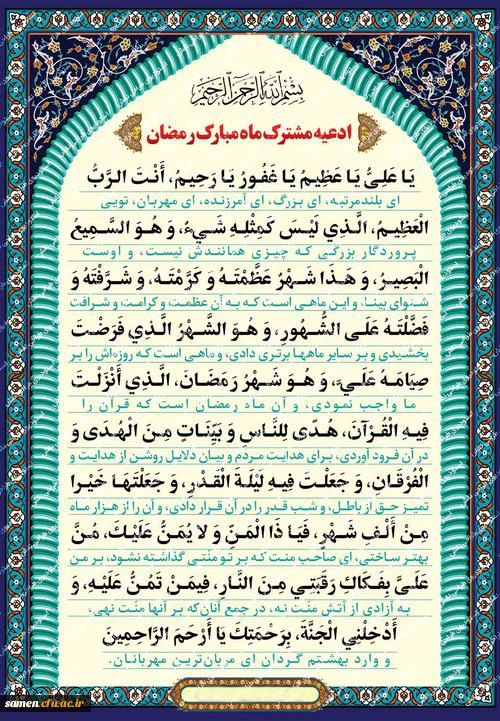 بسم الله الرحمن الرحیم
ادعیه مشترک ماه مبارک رمضان
يَا عَلِيُّ يَا عَظِيمُ يَا غَفُورُ يَا رَحِيمُ، أَنْتَ الرَّبُّ
ای بلندمرتبه، ای بزرگ، ای آمرزنده، ای مهربان، تویی
الْعَظِيمُ، الَّذِي لَيْسَ كَمِثْلِهِ شَيْءٌ، وَ هُوَ السَّمِيعُ
پروردگار بزرگی که چیزی همانندش نیست، و اوست
الْبَصِيرُ، وَ هَذَا شَهْرٌ عَظَّمْتَهُ وَ كَرَّمْتَهُ، وَ شَرَّفْتَهُ وَ
شنوای بینا، و این ماهی است که به آن عظمت و کرامت و شرافت
فَضَّلْتَهُ عَلَى الشُّهُورِ، وَ هُوَ الشَّهْرُ الَّذِي فَرَضْتَ
بخشیدی و بر سایر ماهها برتری دادی، و ماهی است که روزه‌اش را بر
صِيَامَهُ عَلَيَّ، وَ هُوَ شَهْرُ رَمَضَانَ، الَّذِي أَنْزَلْتَ
ما واجب نمودی، و آن ماه رمضان است که قرآن را
فِيهِ الْقُرْآنَ، هُدًى لِلنَّاسِ وَ بَيِّنَاتٍ مِنَ الْهُدَى وَ
در آن فرود آوردی، برای هدایت مردم و بیان دلایل روشن از هدایت و
الْفُرْقَانِ، وَ جَعَلْتَ فِيهِ لَيْلَةَ الْقَدْرِ، وَ جَعَلْتَهَا خَيْرا
تمیز حق از باطل، و شب قدر را در آن قرار دادی، و آن را از هزار ماه
مِنْ أَلْفِ شَهْرٍ، فَيَا ذَا الْمَنِّ وَ لَا يُمَنُّ عَلَيْكَ، مُنَّ
بهتر ساختی، ای صاحب منت که بر تو منّتی گذاشته نشود، بر من
عَلَيَّ بِفَكَاكِ رَقَبَتِي مِنَ النَّارِ، فِيمَنْ تَمُنُّ عَلَيْهِ، وَ
به آزادی از آتش منّت نه، در جمع آنان‌که بر آنها منّت نهی،
أَدْخِلْنِي الْجَنَّةَ، بِرَحْمَتِكَ يَا أَرْحَمَ الرَّاحِمِينَ
و وارد بهشتم گردان ای مهربان‌ترین مهربانان.
samen.cfu.ac.ir